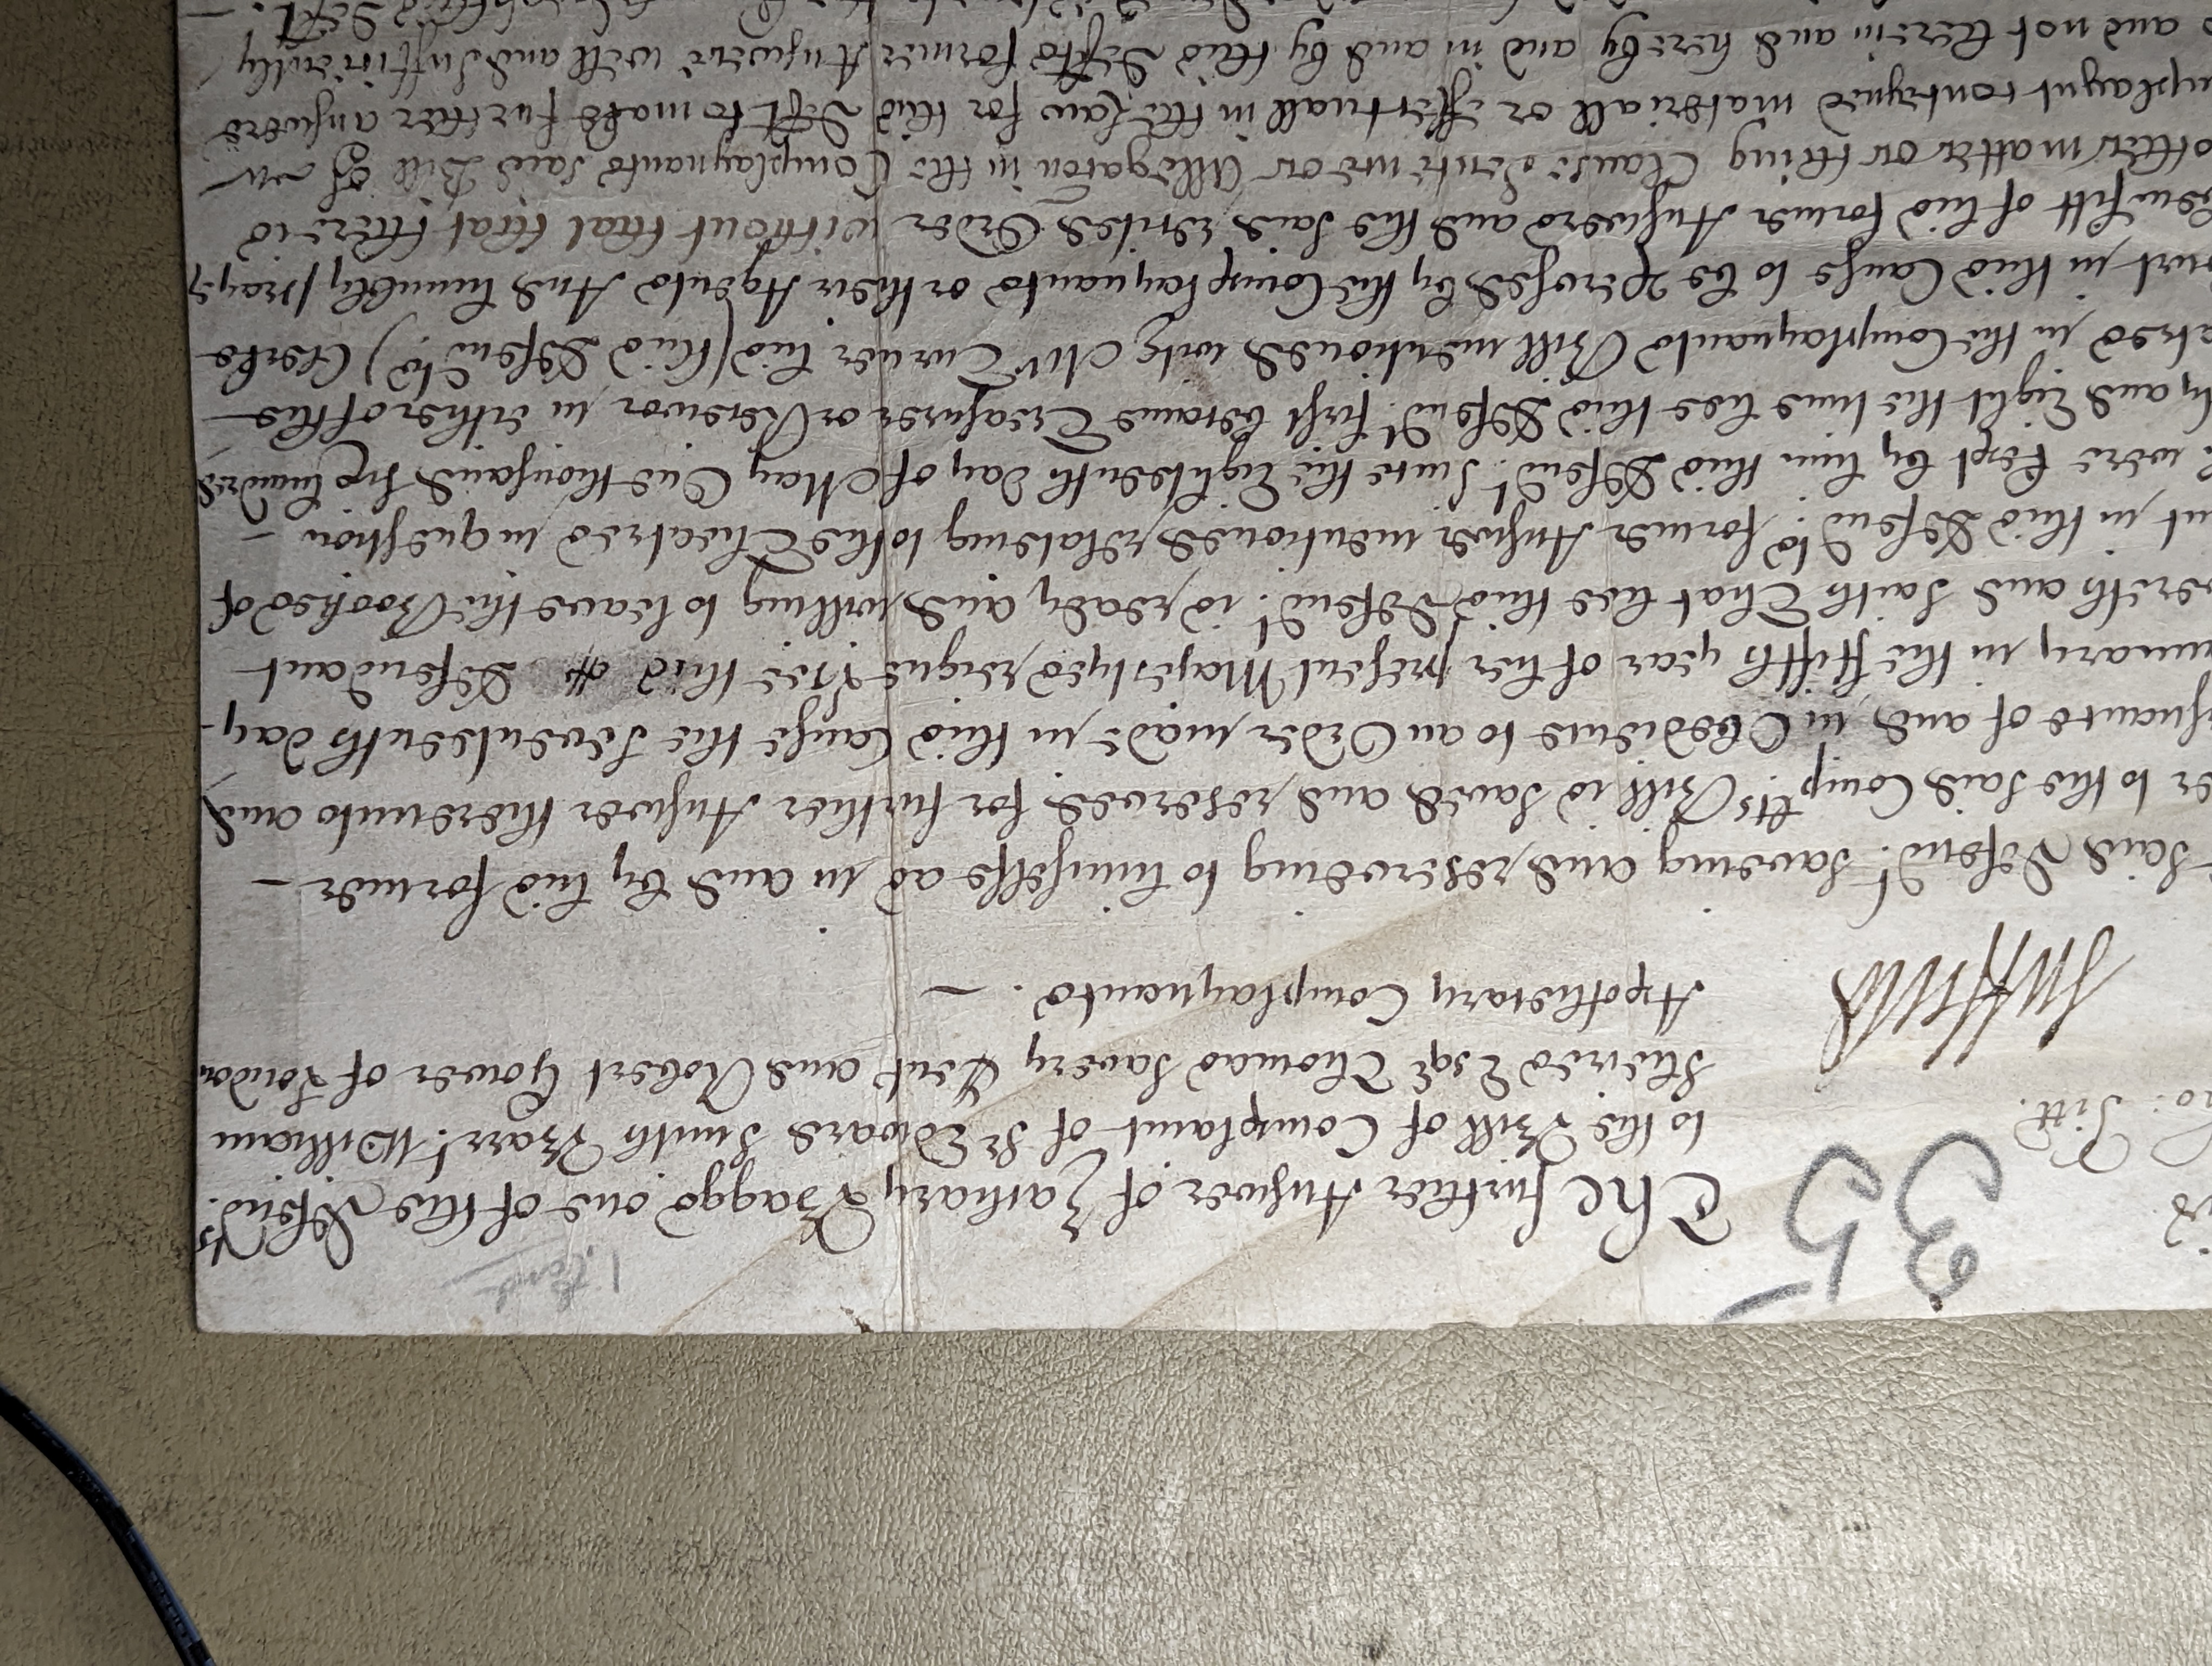 1. Cont
35
The further Answer of Zachary Baggs one of the Defend.ts
to the Bill of Complaint of Sr Edward Smith Barr.t William
Shiers Esqr Thomas Savery Gent and Robert Gower of London
Apothecary Complaynants. —
said Defend.t Saveing and reserveing to himselfe as in and by his former —
er to the said Comp.lts Bill is saved and reserved for further Answer thereunto and
suante of and in Obedience to an Order made in this Cause the Seventeenth day -
nuary in the ffifth year of her present Majestyes reigne Hee this Defendant
vereth and saith That hee this Defend.t is ready and willing to leave the Bookes of
nt in this Defend.ts former Answer mentioned relateing to the Theatres in question —
were kept by him this Defend.t since the Eighteenth day of May One thousand six hundred
ty and Eight the time hee this Defend.t first became Treasurer or Receivor in either of the
atres in the Complaynants Bill mentioned with Mr Turner his (this Defend.ts) Clerke
ourt in this Cause to be perused by the Complaynants or their Agents And humbly prayes
benefitt of his former Answere and the said recited Order without that that there is
other matter or thing Clause sentence or Allegaton in the Complaynants said Bill of
mplaynt conteyned materiall or effectuall in the Law for this Deft to make further answere
and not herein and hereby and in and by this Defts former Answere well and sufficiently